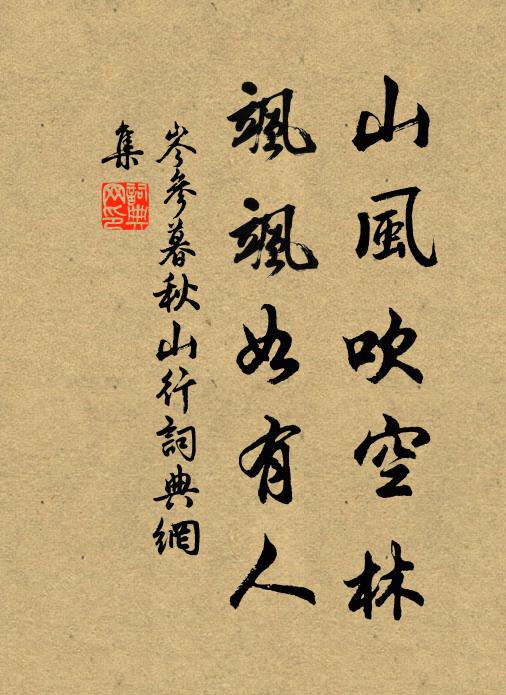 山風吹空林
颯颯如有人
岑參暮秋山行詞典網
集
詞典
网印